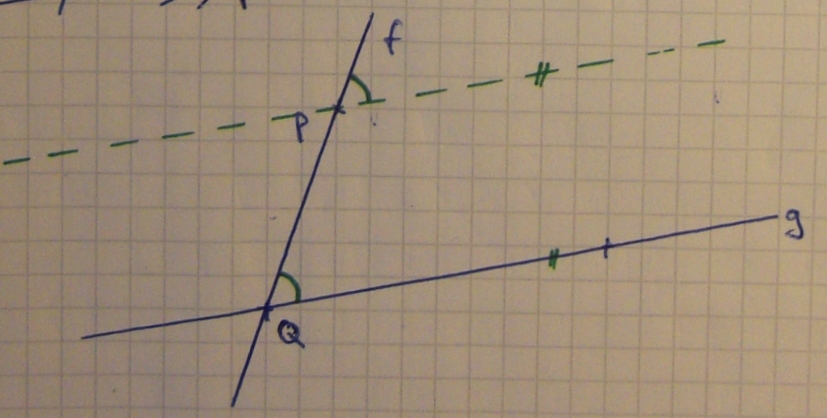 f
P
g
Q